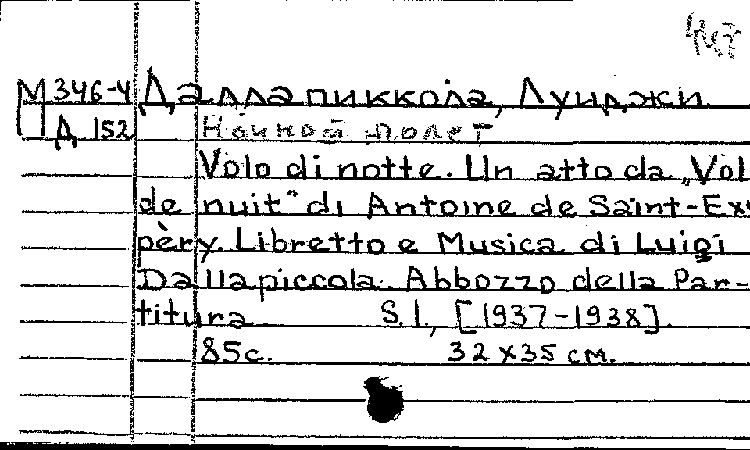 М 346-4 Даллапиккола, Луиджи
Д 152 Ночной полет
Volo di notte. Un atto da „Vol
de nuit" di Antoine de Saint-Exu
pèry. Libretto e Musica di Luigi
Dallapiccola. Abbozzo della Par-
titura S.l., [1937-1938].
85с. 32x35 см.